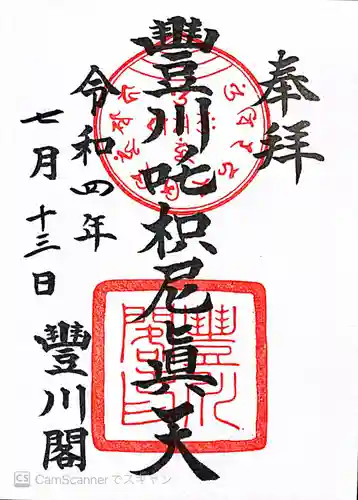 奉拝
豐川吒枳尼眞天
令和四年
七月十三日
豐川閣
豐川閣印
CS CamScanner でスキャン